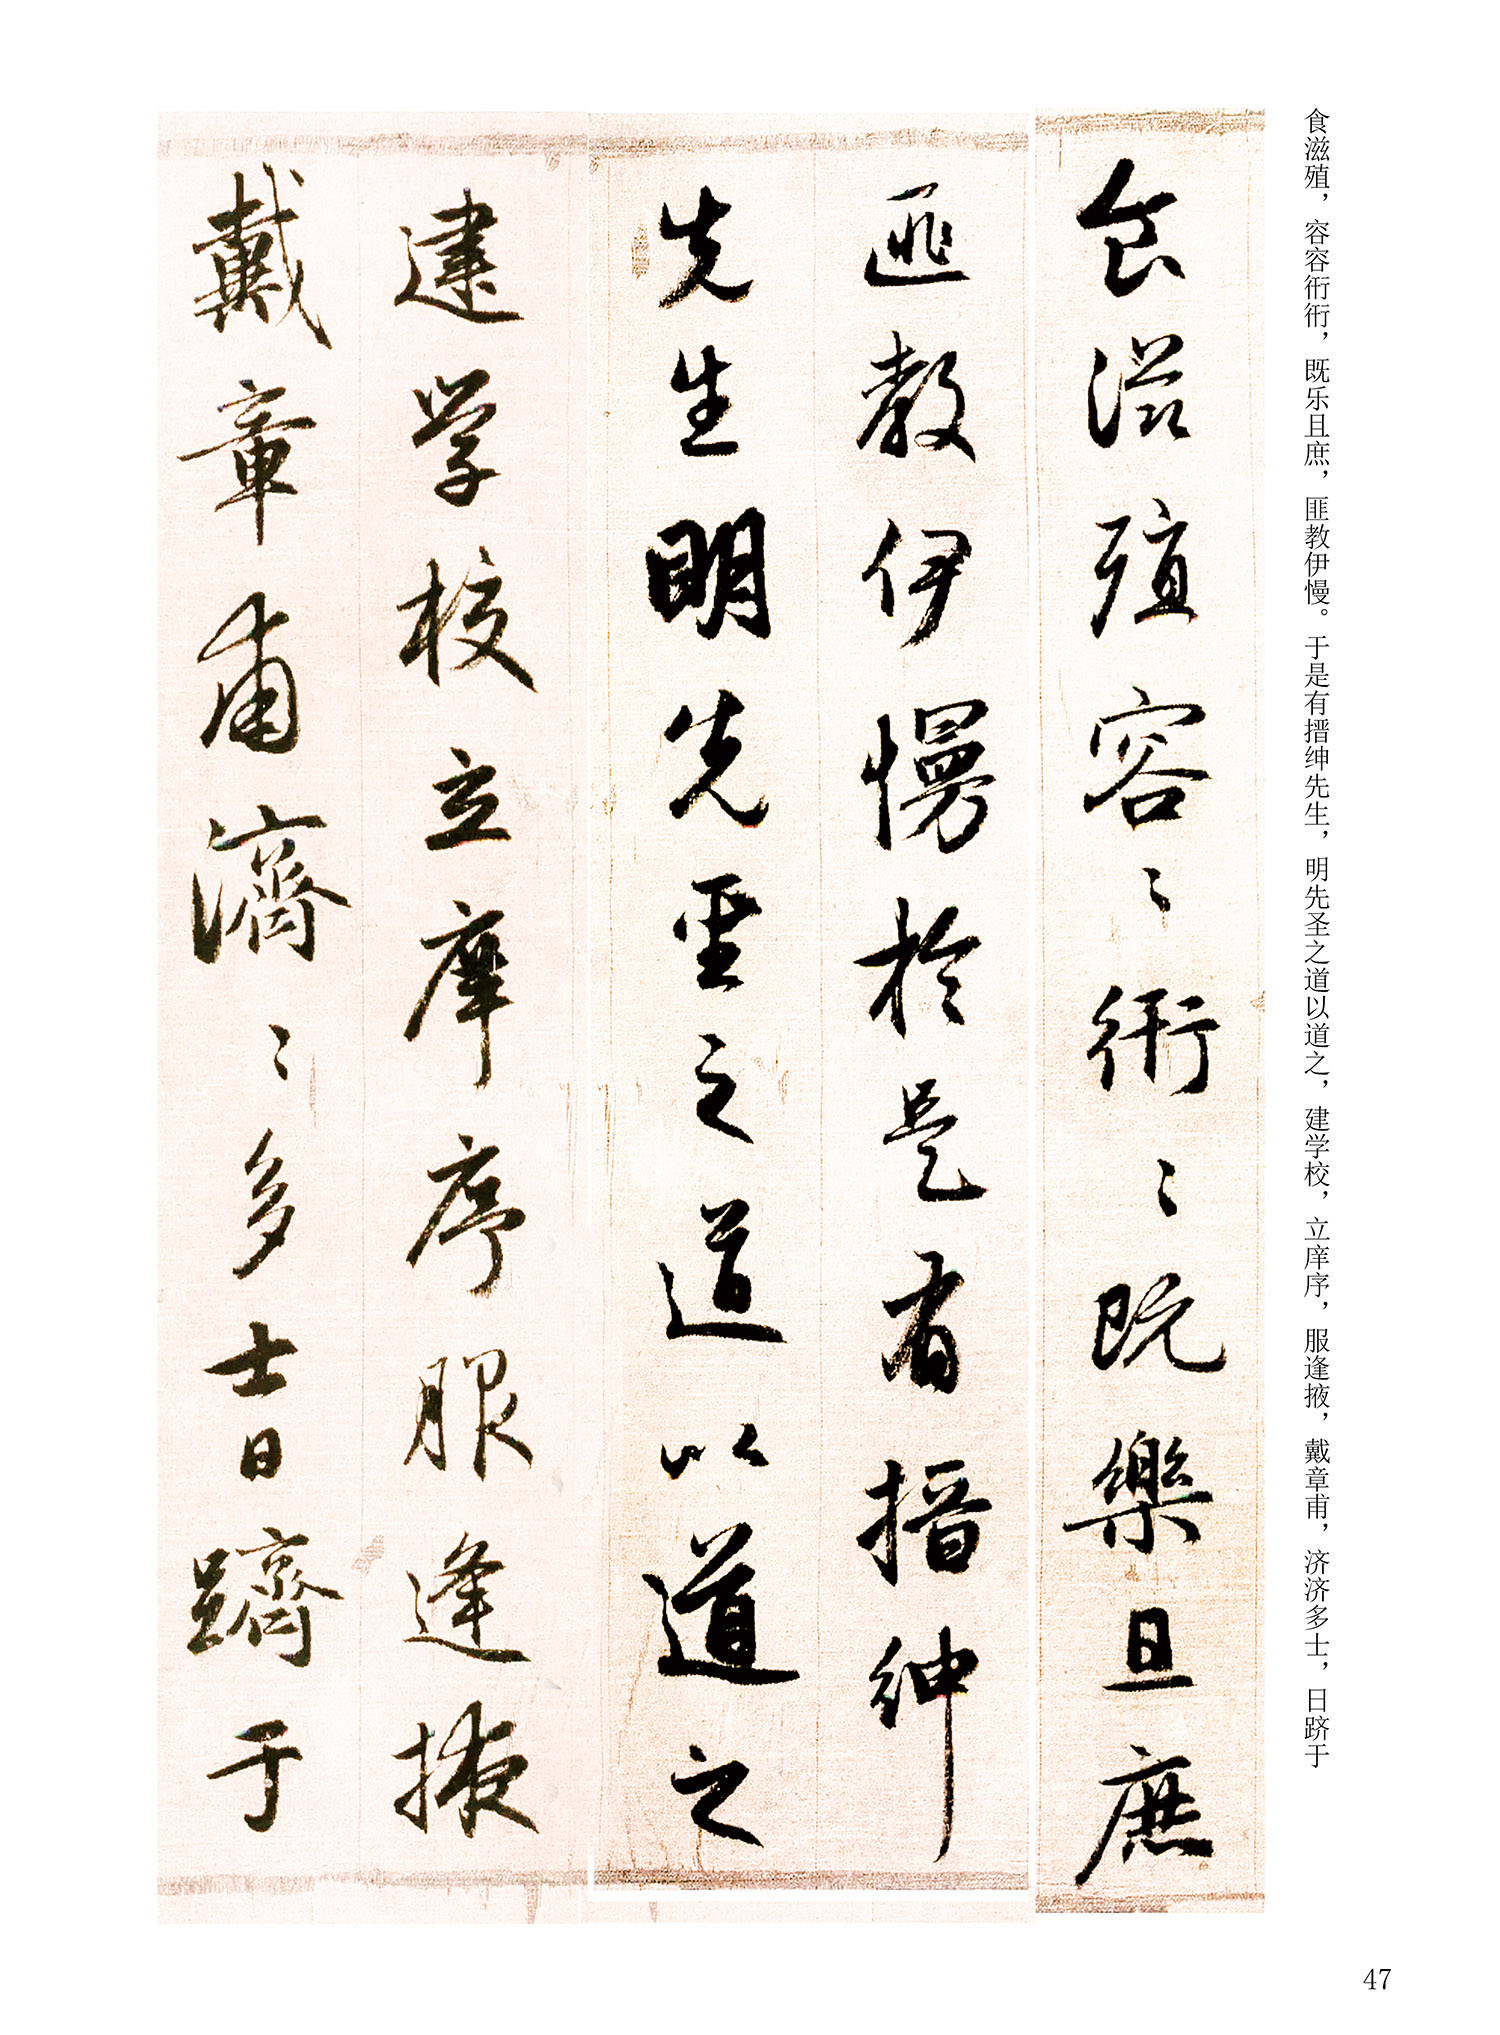 食滋殖，容容衎衎，既乐且庶，匪教伊慢。于是有搢绅先生，明先圣之道以道之，建学校，立庠序，服逢掖，戴章甫，济济多士，日跻于
食滋殖容〻衎〻既樂且庶
匪教伊慢於是有搢紳
先生明先聖之道以道之
建学校立庠序服逢掖
戴章甫濟〻多士日躋于
47